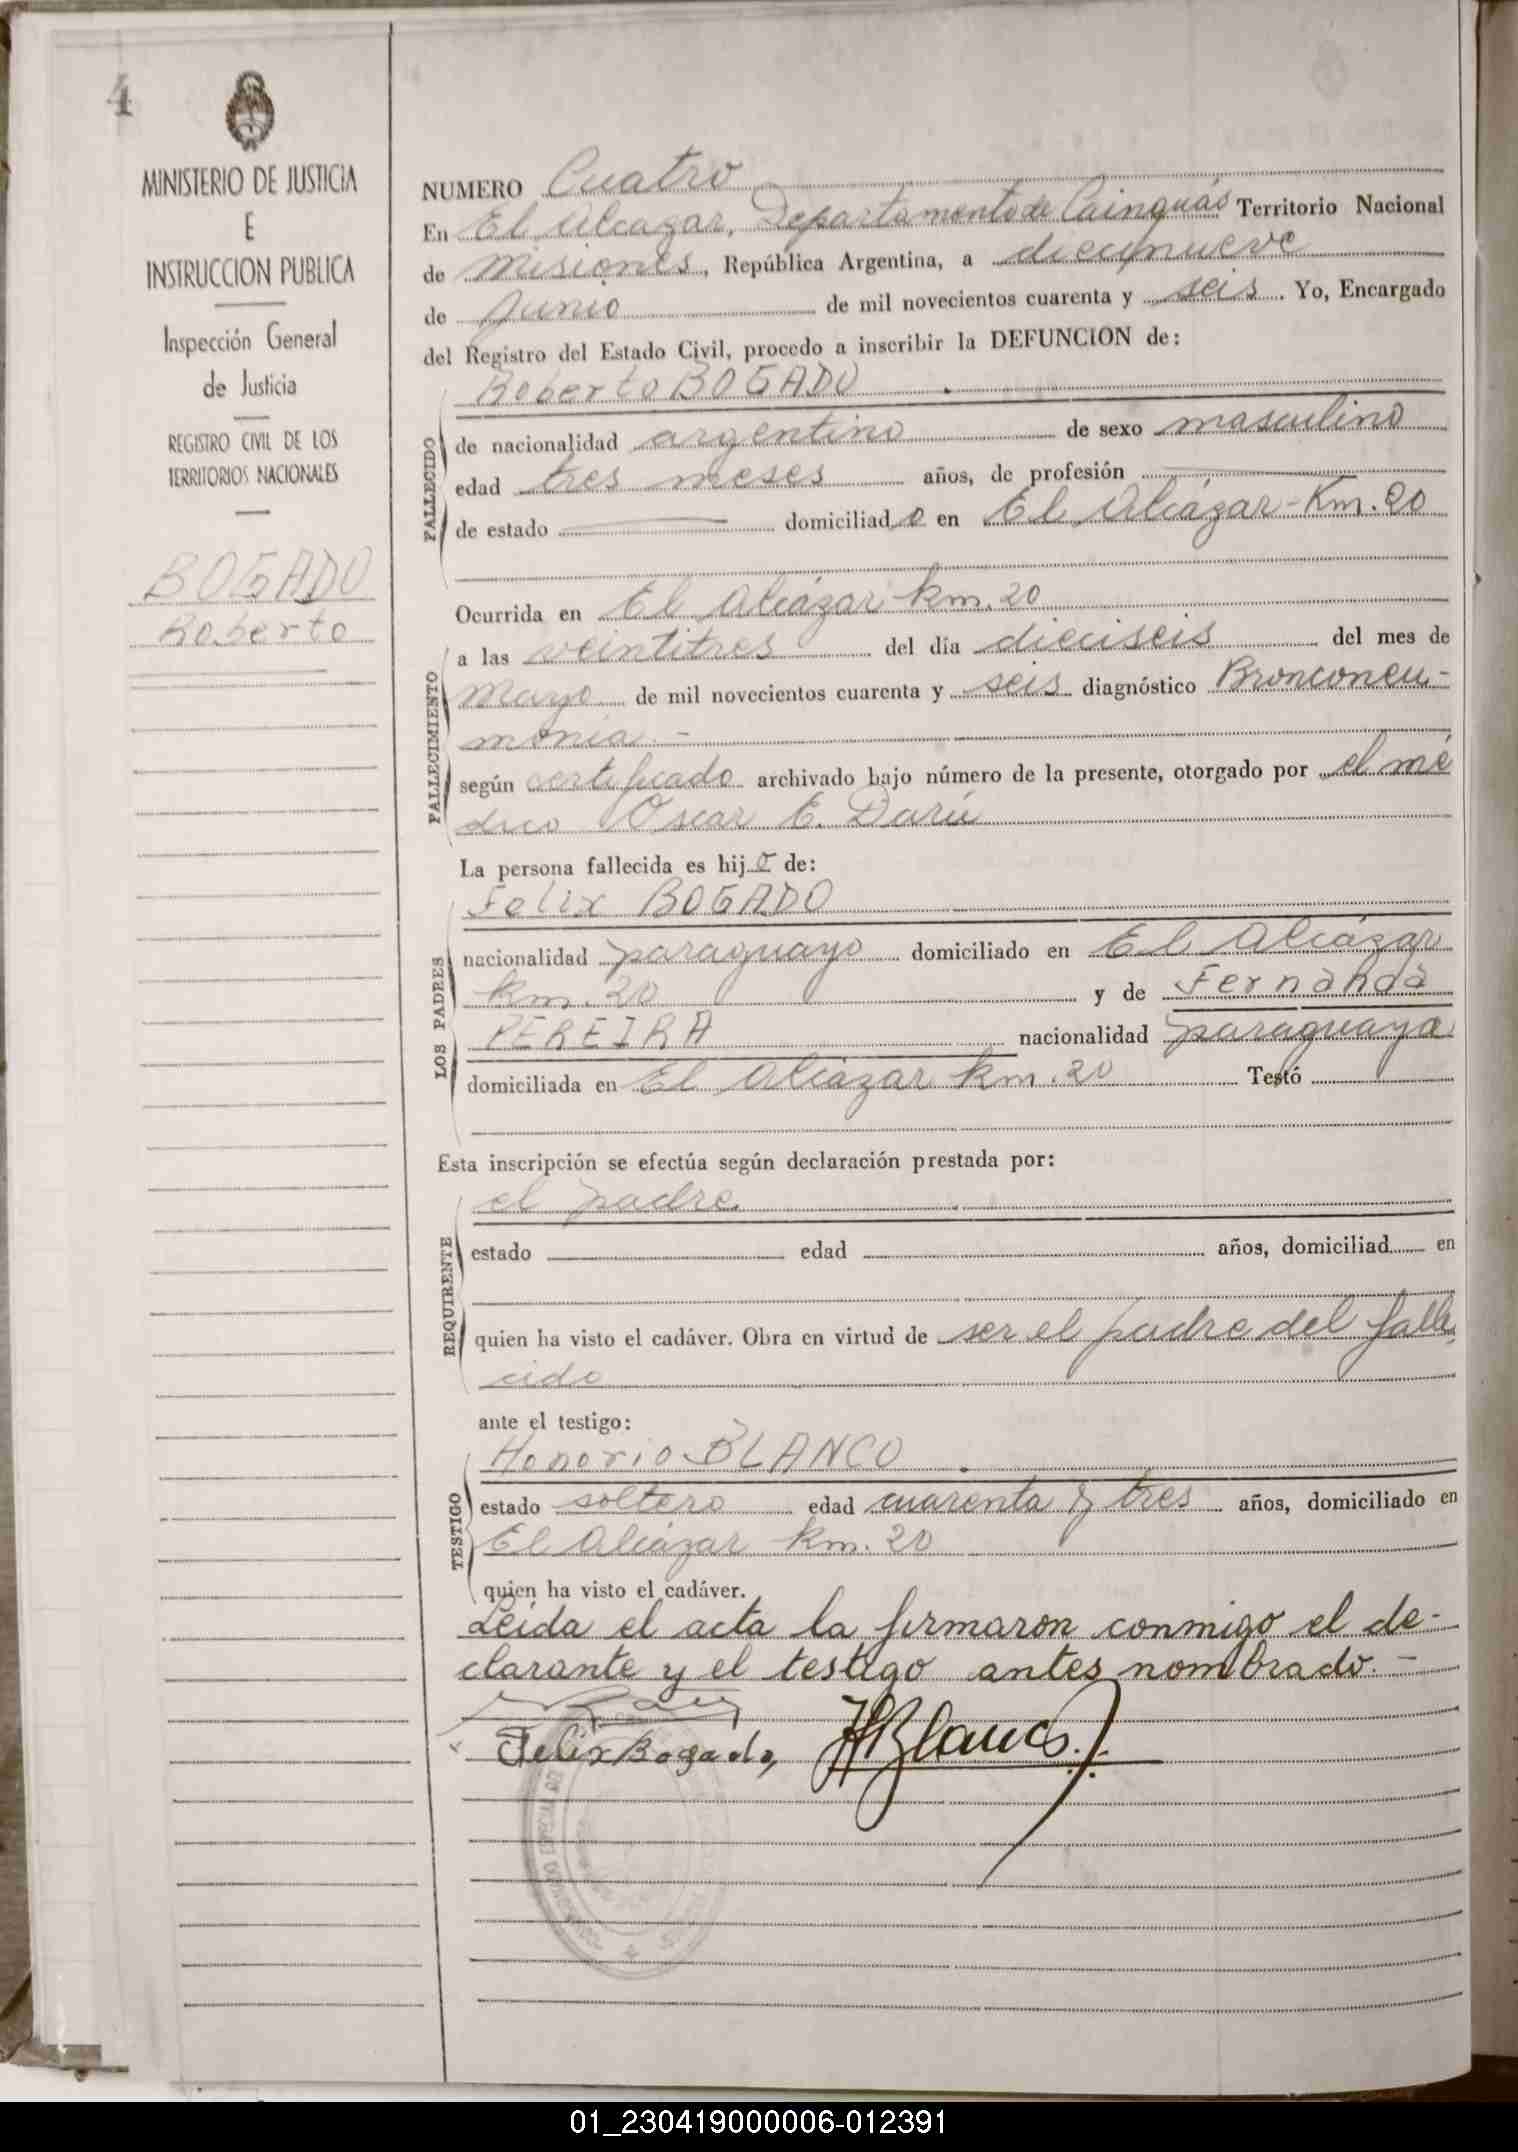 4
MINISTERIO DE JUSTICIA
E
INSTRUCCION PUBLICA
Inspección General
de Justicia
REGISTRO CIVIL DE LOS
TERRITORIOS NACIONALES
BOGADO
Roberto
NUMERO Cuatro
En El Alcazar, Departamento de Cainguás Territorio Nacional
de Misiones, República Argentina, a diecinueve
de Junio de mil novecientos cuarenta y seis. Yo, Encargado
del Registro del Estado Civil, procedo a inscribir la DEFUNCION de:
Roberto BOGADO
FALLECIDO
de nacionalidad argentino de sexo masculino
edad tres meses años, de profesión
de estado domiciliado en El Alcázar-Km. 20
Ocurrida en El Alcázar km. 20
a las veintitres del día dieciseis del mes de
FALLECIMIENTO
Mayo de mil novecientos cuarenta y seis diagnóstico Bronconeu-
monia.-
según certificado archivado bajo número de la presente, otorgado por el mé
dico Oscar E. Darú
La persona fallecida es hijo de:
Felix BOGADO
LOS PADRES
nacionalidad paraguayo domiciliado en El Alcázar
km. 20 y de Fernanda
PEREIRA nacionalidad paraguaya
domiciliada en El Alcázar km. 20 Testó
Esta inscripción se efectúa según declaración prestada por:
el padre
REQUIRENTE
estado edad años, domiciliad en
quien ha visto el cadáver. Obra en virtud de ser el padre del falle
cido
ante el testigo:
Honorio BLANCO
TESTIGO
estado soltero edad cuarenta y tres años, domiciliado en
El Alcázar km. 20
quien ha visto el cadáver.
Leida el acta la firmaron conmigo el de-
clarante y el testigo antes nombrado.-
Felix Bogado, HBlanco
01_230419000006-012391